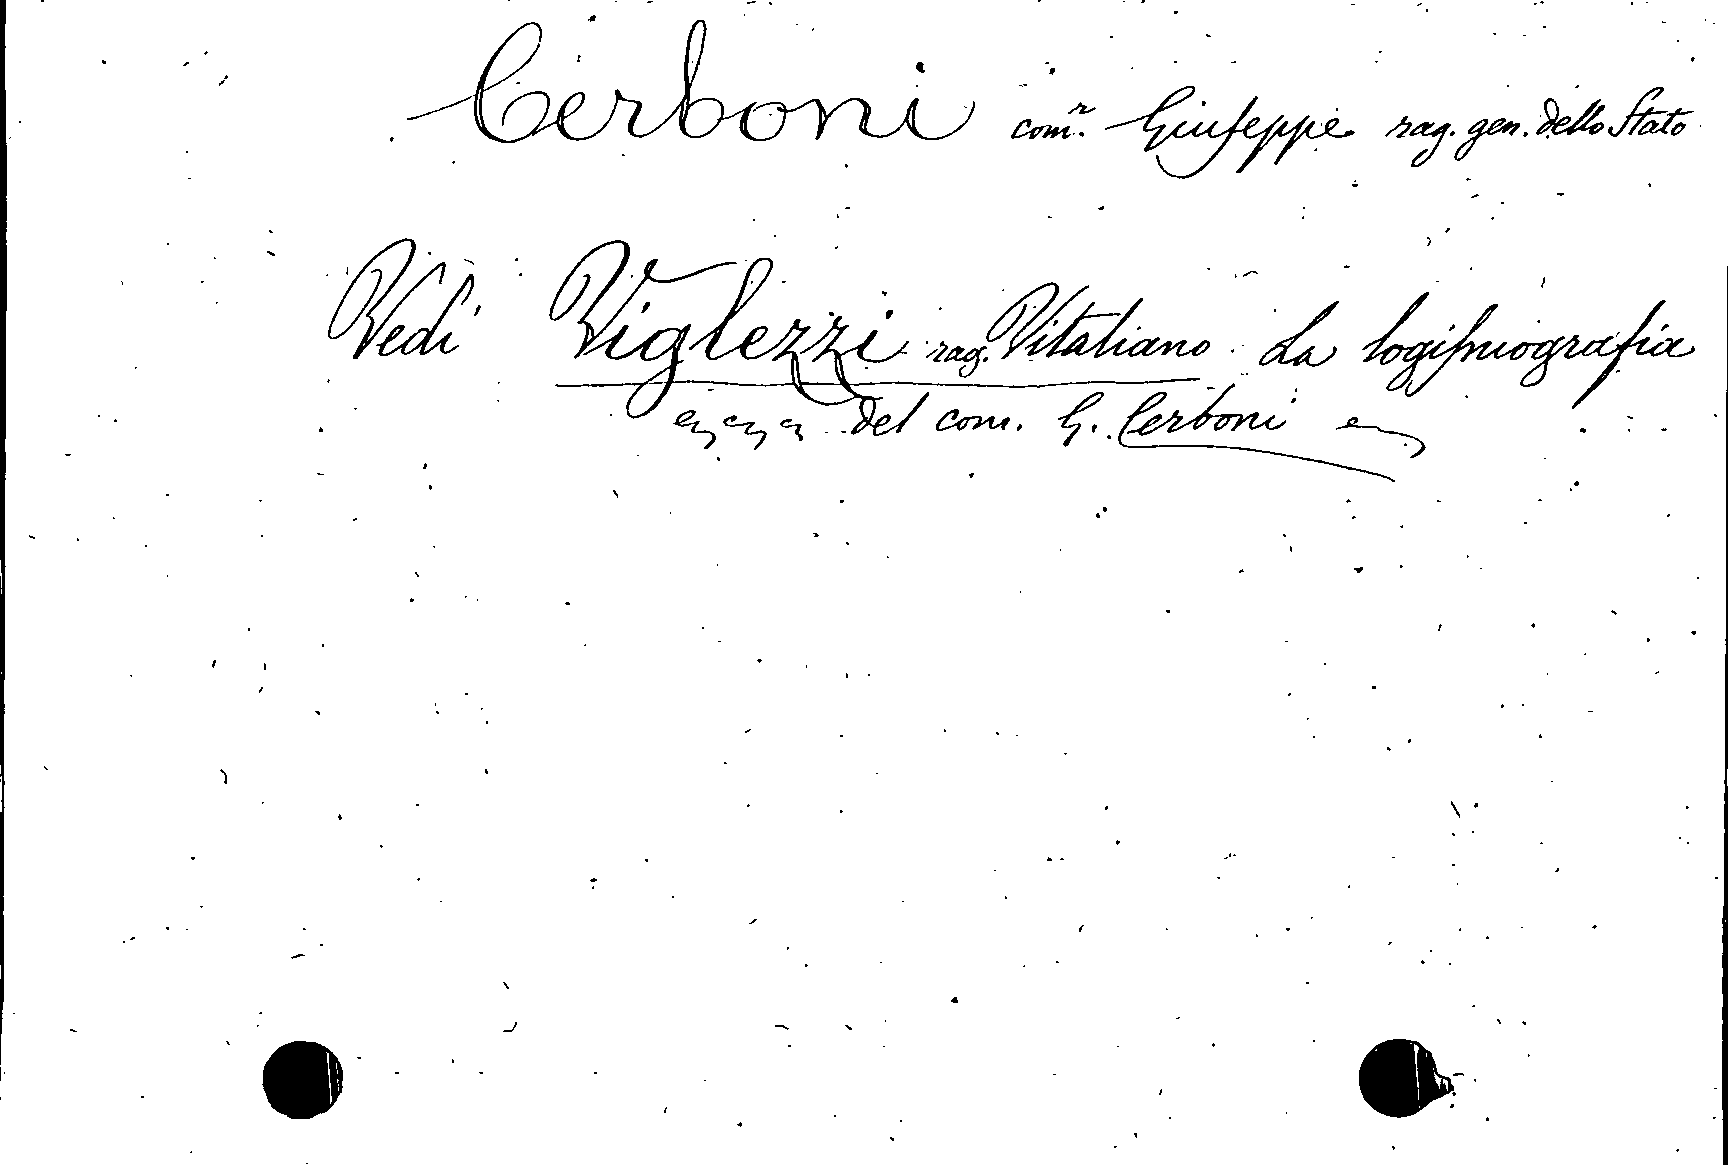 Cerboni com.r Giuseppe rag. gen. dello Stato
Vedi Viglezzi rag. Vitaliano La logismografia
del com. G. Cerboni